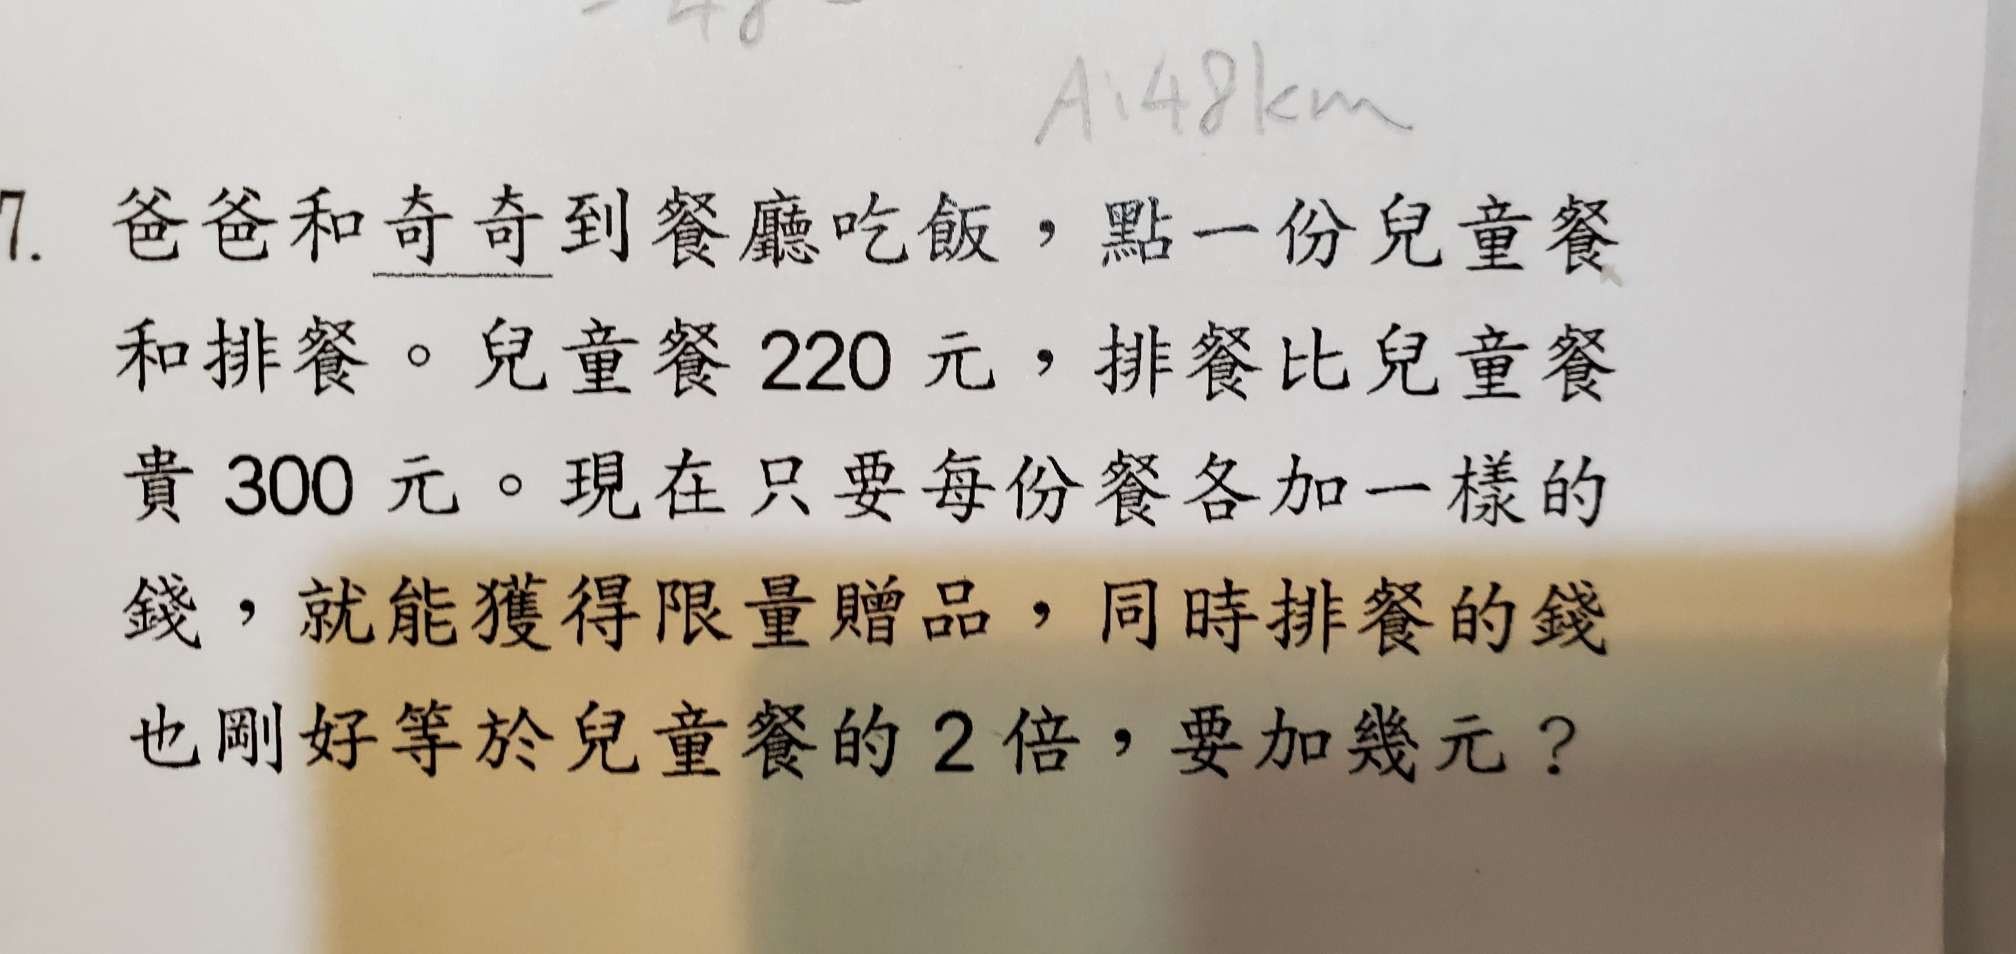 48
A:48km
7. 爸爸和奇奇到餐廳吃飯，點一份兒童餐
和排餐。兒童餐 220 元，排餐比兒童餐
貴 300 元。現在只要每份餐各加一樣的
錢，就能獲得限量贈品，同時排餐的錢
也剛好等於兒童餐的 2 倍，要加幾元？